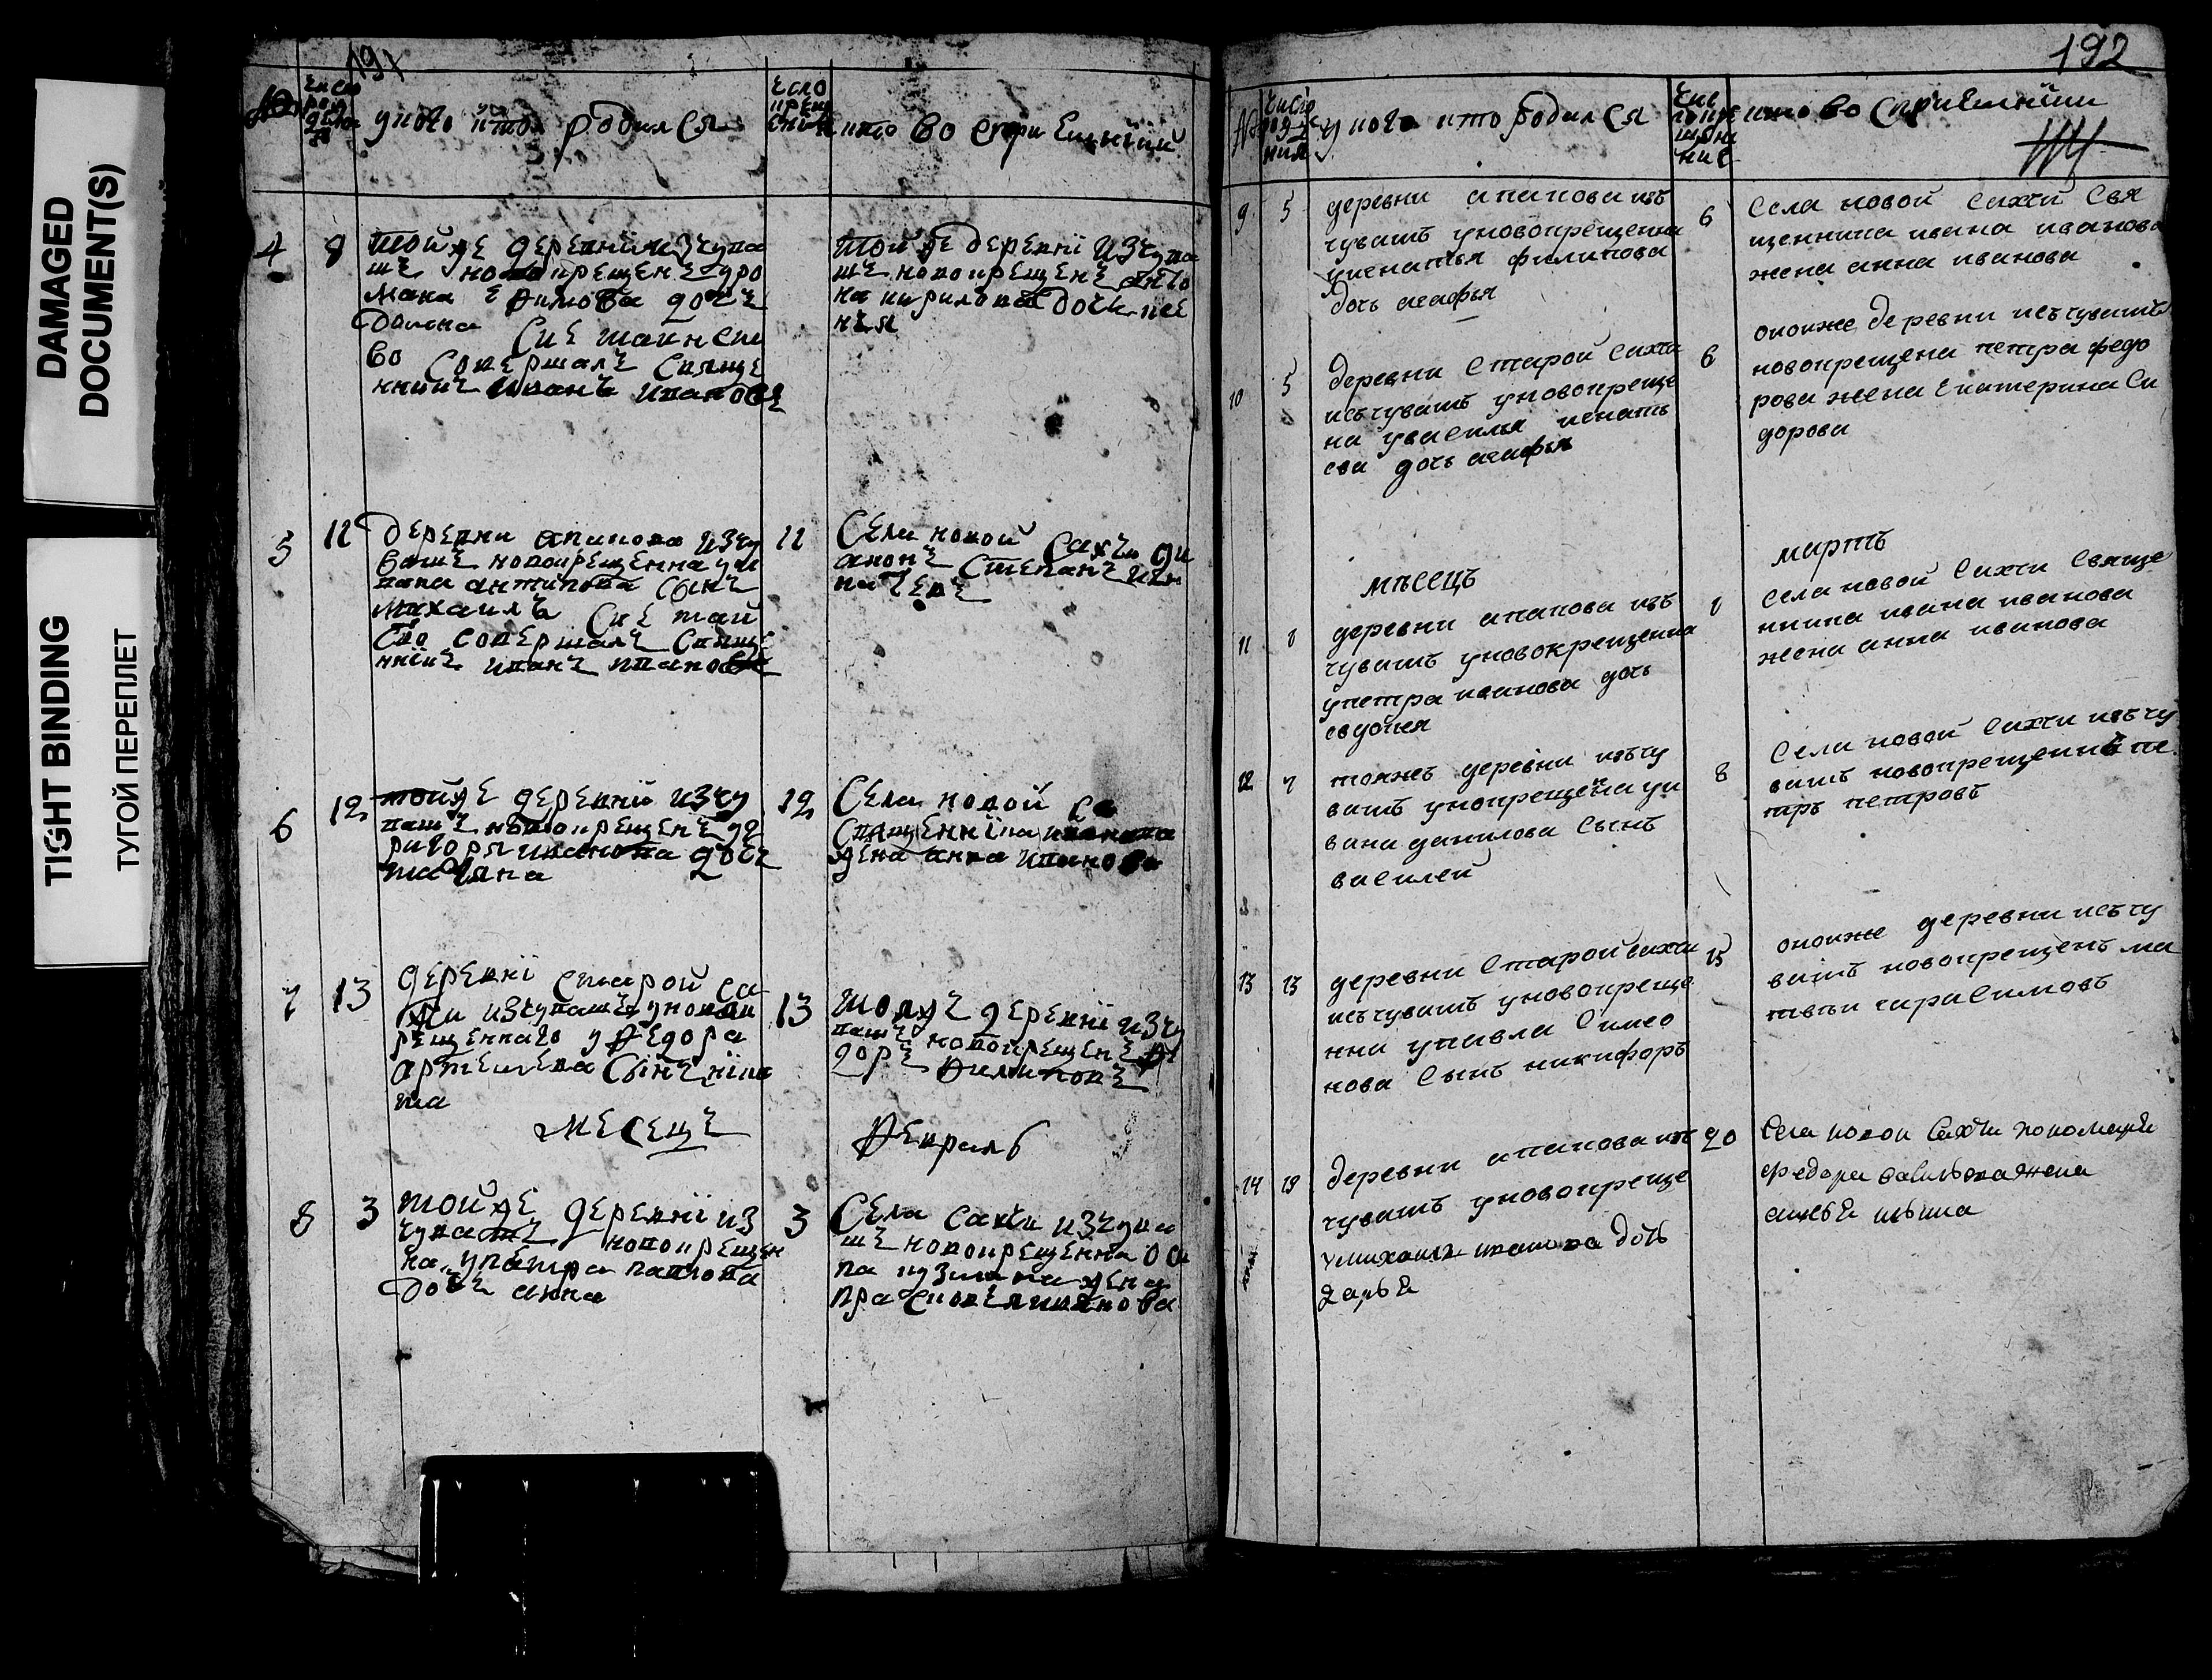 DAMAGED
DOCUMENT(S)
TIGHT BINDING
ТУГОЙ ПЕРЕПЛЕТ
191
№
число
рож
дени
я
у кого кто родился
число
крещ
ения
кто восприемники
4
8
тойже деревни изчува
шъ новокрещенъ уро
мана ефимова дочь
Сие таинст
во Совершалъ Свяще
нникъ иванъ ивановъ
тойже деревнї изчува
шъ новокрещенъ анто
на кирилова дочь
5
11
деревни апанова изчу
вашъ новокрещенна уи
вана антипова сынъ
михаилъ Сие таи
ство совершалъ Свяще
нникъ иванъ ивановъ
11
Села новой Сахчи ди
аконъ Степанъ
6
12
тойже деревнї изчу
вашъ новокрещенъ уг
ригорья иванова дочь
татьяна
12
Села новой Са
Священнїка иванова
жена анна иванова
7
13
деревнї старой са
хчи изчувашъ уновок
рещеннаго уфедора
артемьева сынъ ники
та
13
тояжъ деревнї изчу
вашъ новокрещенъ фе
доръ филиповъ
месецъ
Февраль
8
3
тойже деревнї из
чувашъ новокрещен
на упетра павлова
дочь анна
3
Села сахчи изчува
шъ новокрещенна оси
па кузмина жена
прасковея иванова
192
№
число
рож
ния
у кого кто родился
чис
ло кре
щени
ние
кто восприемники
9
5
деревни апанова изъ
чувашъ уновокрещенна
уигнатья филипова
дочь агафья
6
Села новой сахчи свя
щенника ивана иванова
жена анна иванова
10
5
деревни Старой сахчи
исъчувашъ уновокреще
на увасилья игнать
ева дочь агафья
6
оноиже деревни исъчувашъ
новокрещена петра федо
рова жена екатерина си
дорова
месецъ
мартъ
11
1
деревни апанова изъ
чувашъ уновокрещенна
упетра иванова дочь
евдокея
1
села новой сахчи свяще
нника ивана иванова
жена анна иванова
12
7
тояжъ деревни изъчу
вашъ унокрещена уи
вана данилова сынъ
василеи
8
Села новой сахчи изъчу
вашъ новокрещеннъ пе
тръ петровъ
13
13
деревни Старой сахчи
исъчувашъ уновокреще
нна упавла симео
нова сынъ никифоръ
15
оноиже деревни исъчу
вашъ новокрещенъ ма
твеи гарасимовъ
14
19
деревни апанова изъ
чувашъ уновокреще
умихаила иванова дочь
дарья
20
Села новои Сахчи пономаря
федора васильева жена